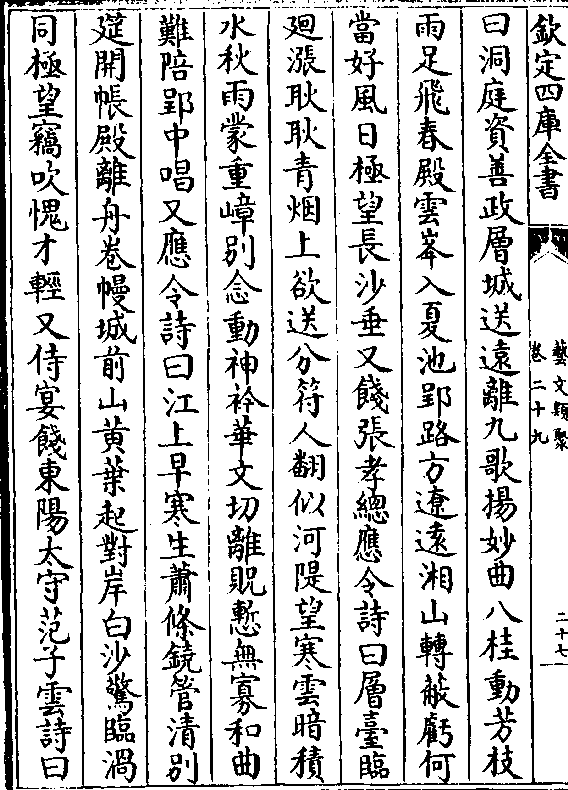 欽定四庫全書
藝文類聚
卷二十九
二十七
曰洞庭資善政層城送遠離九歌揚妙曲八桂動芳枝
雨足飛春殿雲峯入夏池郢路方遼遠湘山轉蔽虧何
當好風日極望長沙垂又餞張孝總應令詩曰層臺臨
廻漲耿耿青烟上欲送分符人翻似河隄望寒雲暗積
水秋雨蒙重嶂别念動神衿華文切離貺慙無寡和曲
難陪郢中唱又應令詩曰江上早寒生蕭條鐃管清别
筵開帳殿離舟卷幔城前山黄葉起對岸白沙驚臨渦
同極望竊吹愧才輕又侍宴餞東陽太守范子雲詩曰